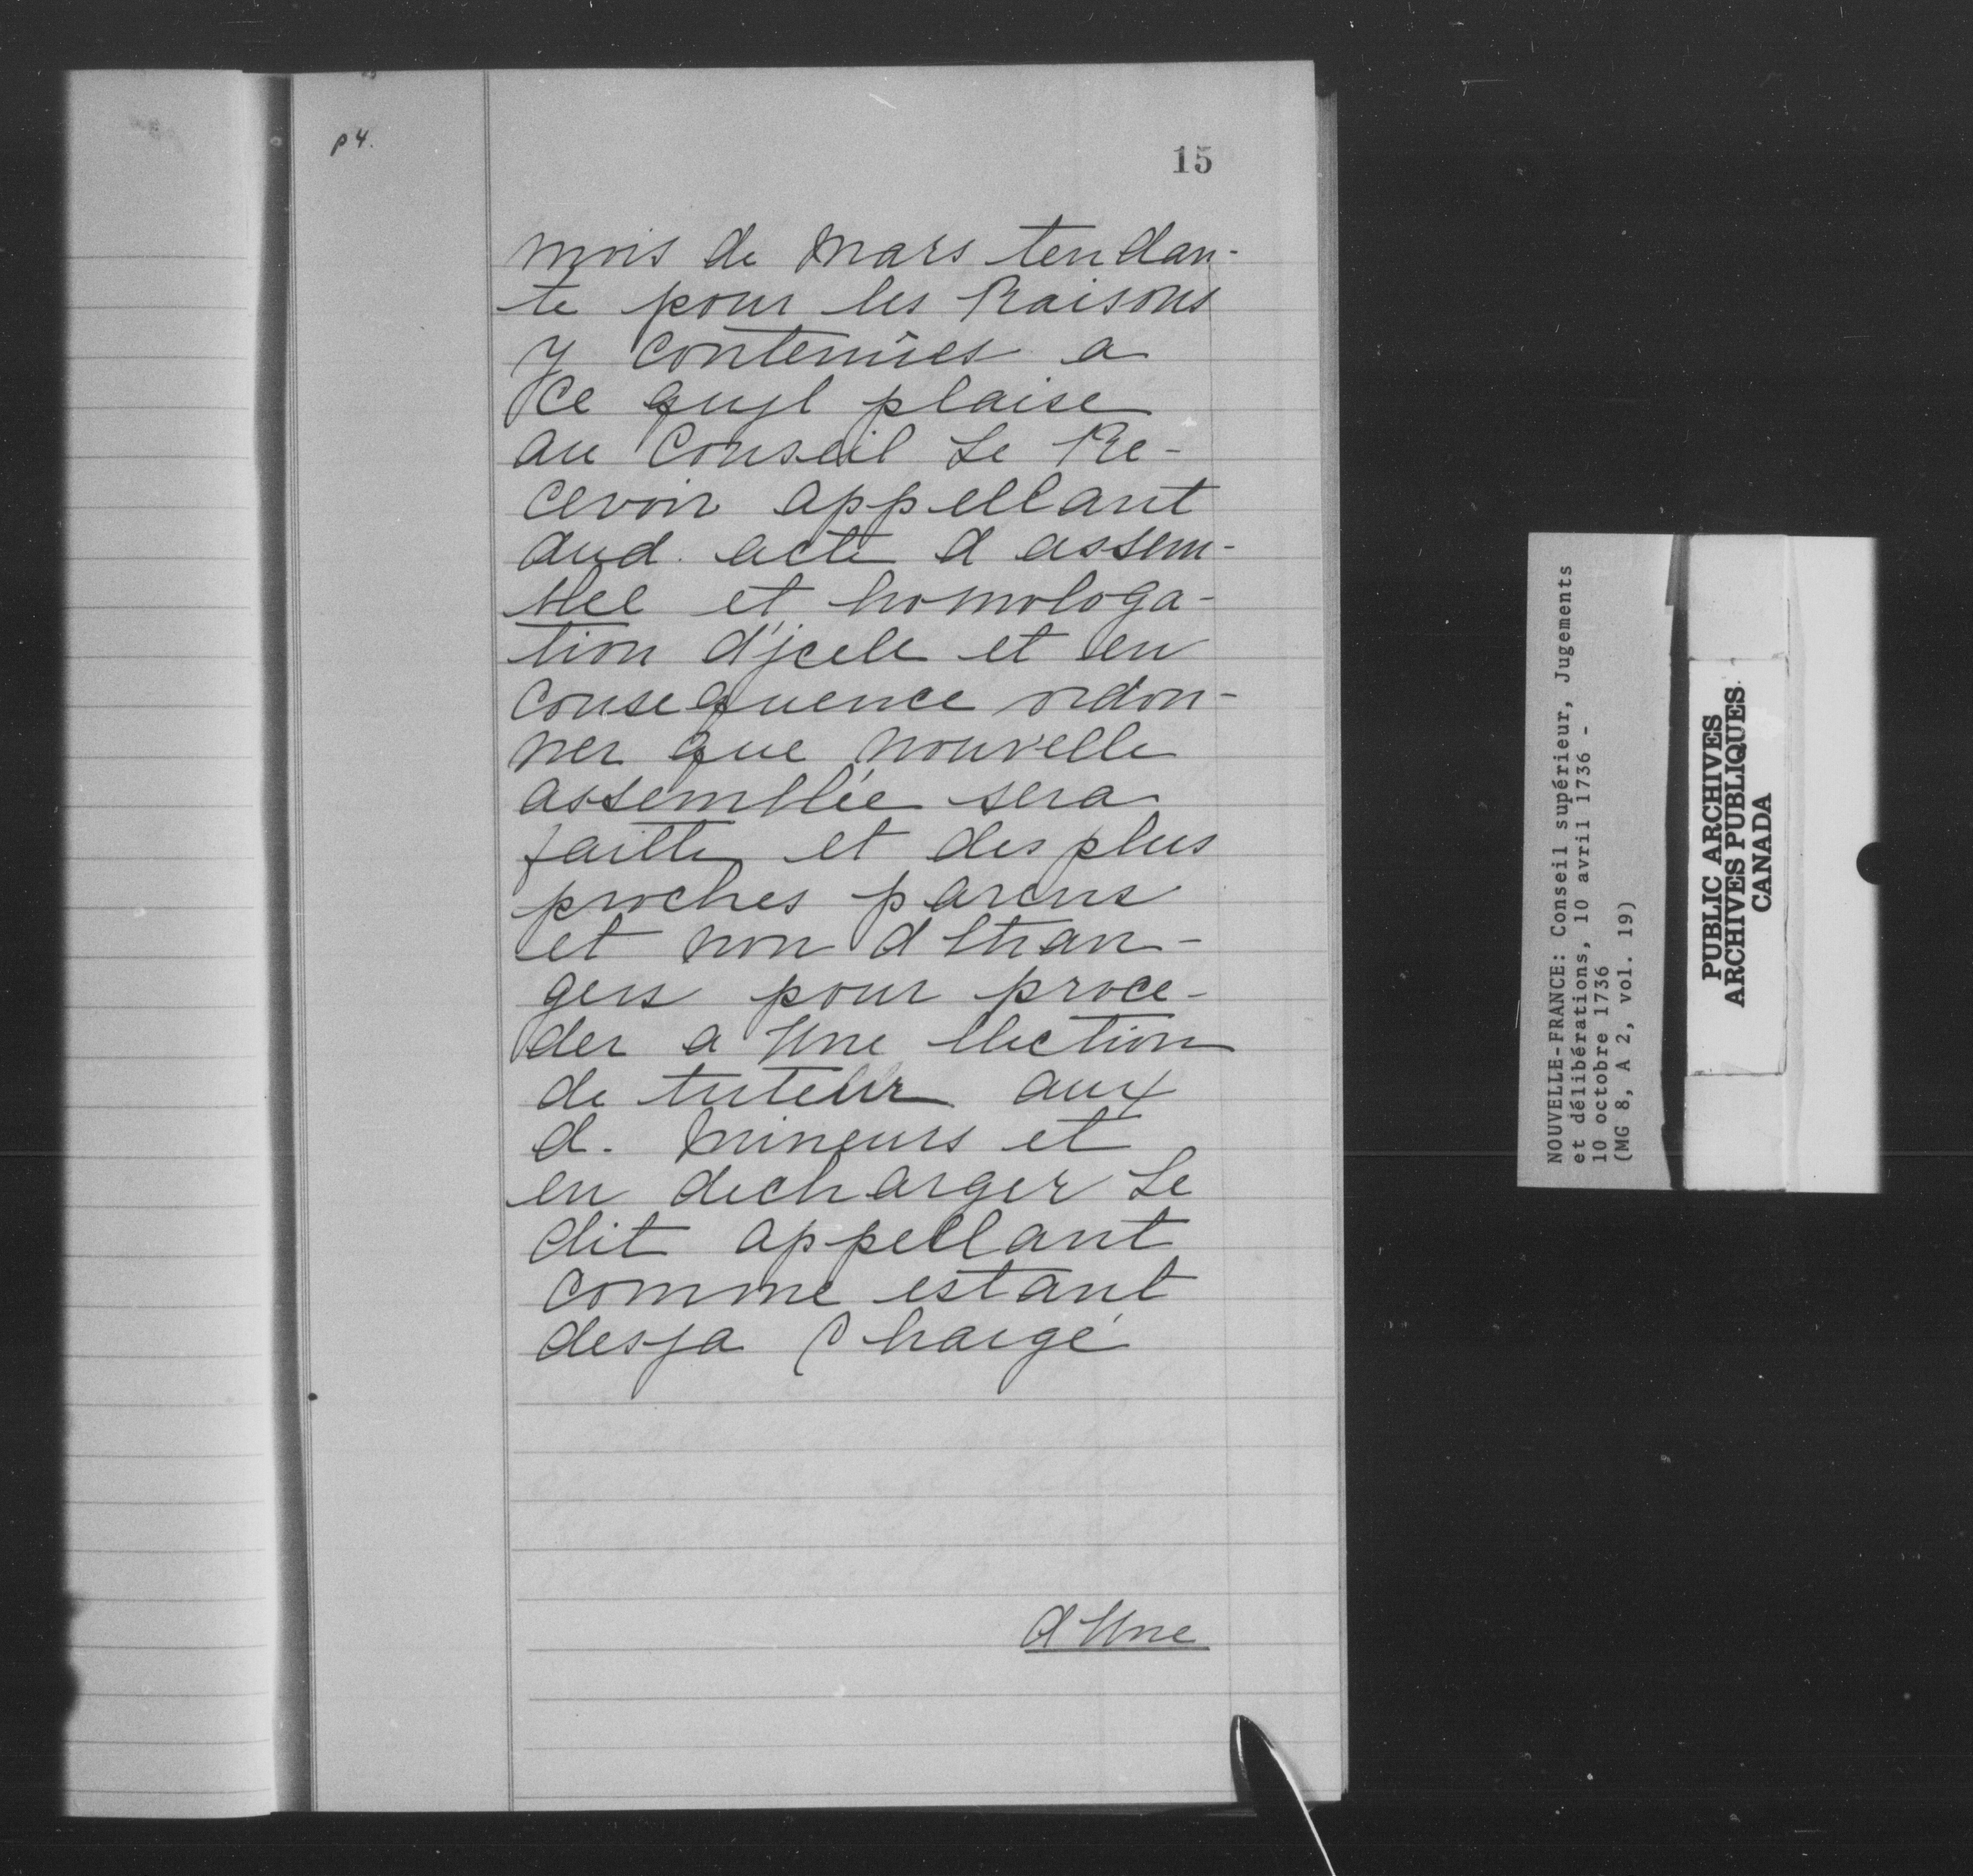 p4.
15
mois de Mars tendan-
te pour les Raisons
y contenües a
ce quyl plaise
au Conseil Le Re-
cevoir appellant
aud. acte d assem-
blee et homologa-
tion d'jcele et en
consequence ordon-
ner que nouvelle
assemblée sera
faitte et des plus
proches parens
et non d Etran-
gers pour proce-
der a Une Election
de tuteur aux
d. Mineurs et
en decharger Le
dit appellant
comme estant
desja Chargé
d Une
NOUVELLE-FRANCE: Conseil supérieur, Jugements
et délibérations, 10 avril 1736 -
10 octobre 1736
(MG 8, A 2, vol. 19)
PUBLIC ARCHIVES
ARCHIVES PUBLIQUES
CANADA